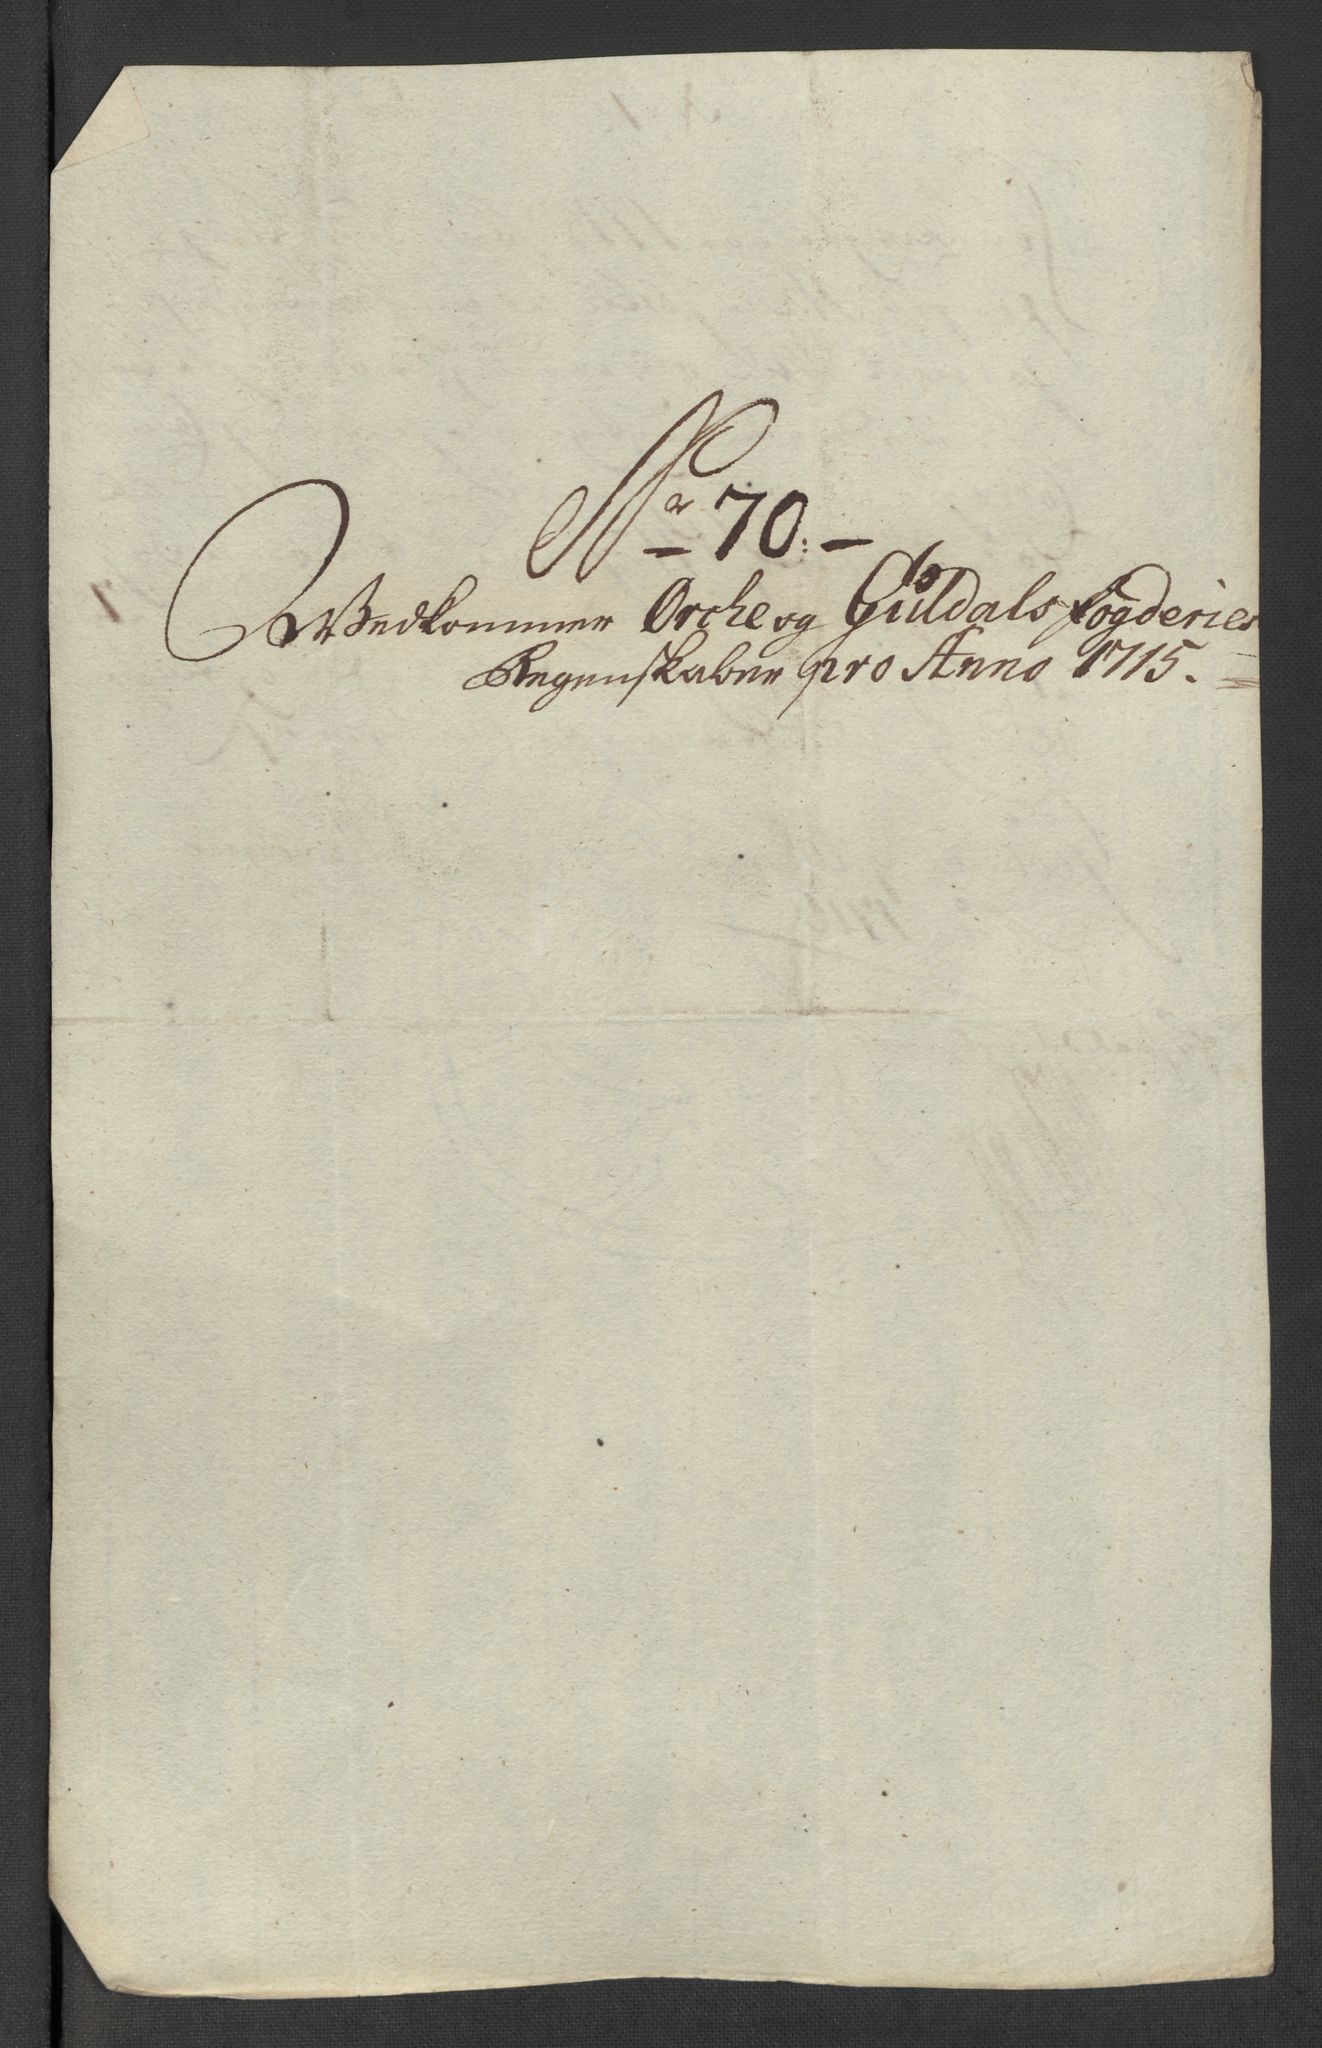 Nr 70:
Wedkommer Orche og Guldals fogderies
Regenskaber pro Anno 1715.